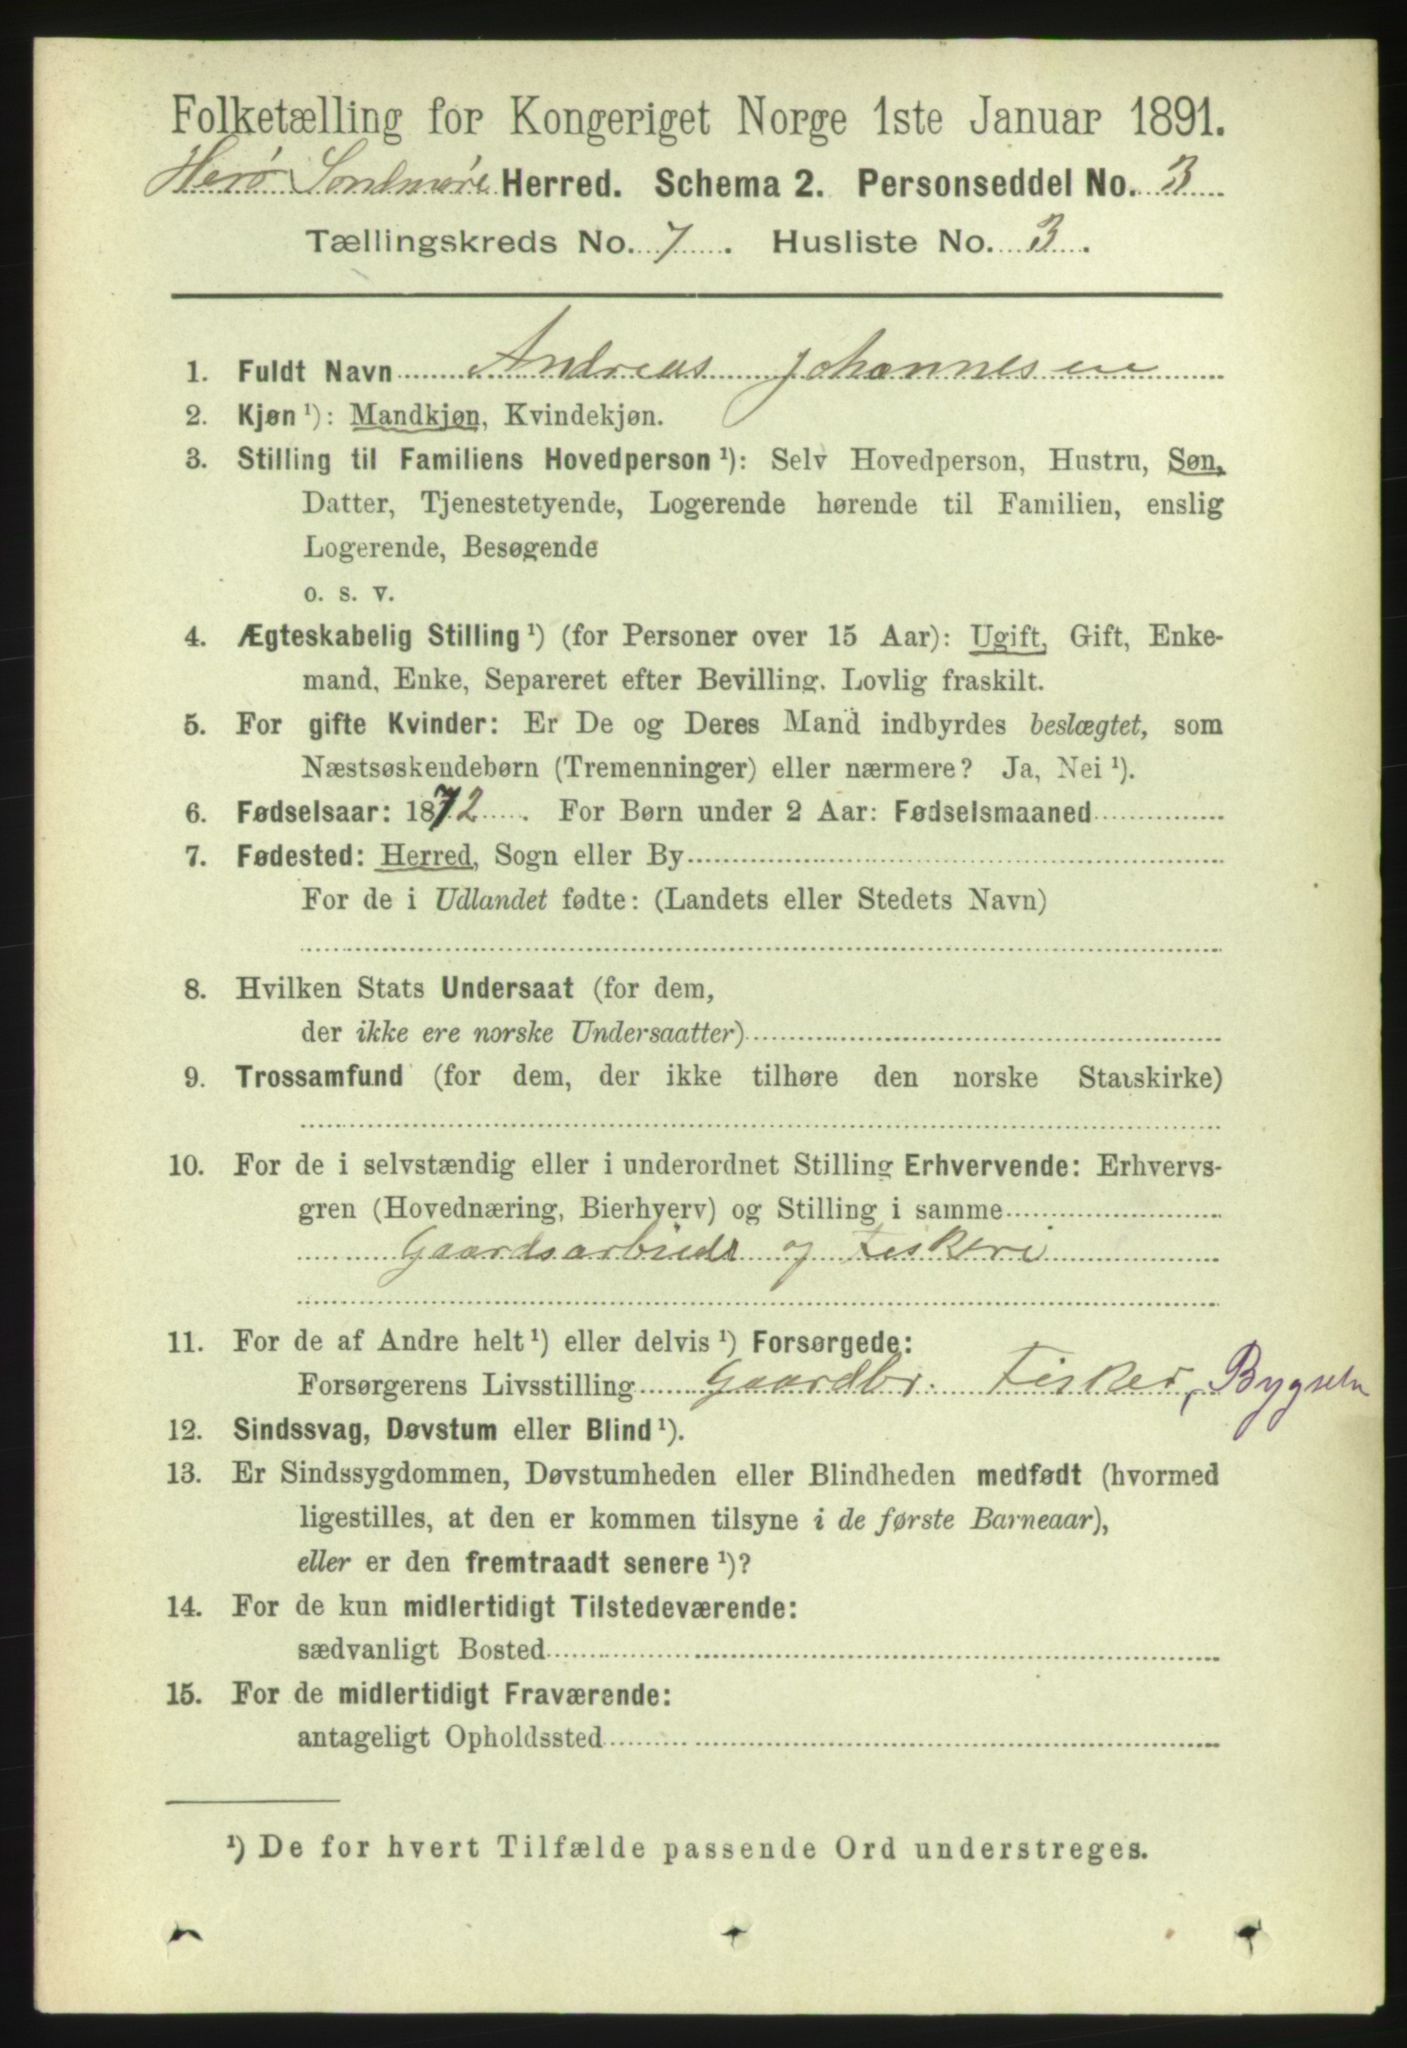 Folketælling for Kongeriget Norge 1ste Januar 1891.
Herø Søndmøre Herred. Schema 2. Personseddel No. 3
Tællingskreds No. 7. Husliste No. 3.
1. Fuldt Navn Andreas Johannesen
2. Kjøn ¹): Mandkjøn, Kvindekjøn.
3. Stilling til Familiens Hovedperson ¹): Selv Hovedperson, Hustru, Søn,
Datter, Tjenestetyende, Logerende hørende til Familien, enslig
Logerende, Besøgende
o. s. v.
4. Ægteskabelig Stilling ¹) (for Personer over 15 Aar): Ugift, Gift, Enke-
mand, Enke, Separeret efter Bevilling. Lovlig fraskilt.
5. For gifte Kvinder: Er De og Deres Mand indbyrdes beslægtet, som
Næstsøskendebørn (Tremenninger) eller nærmere? Ja, Nei ¹).
6. Fødselsaar: 1872. For Børn under 2 Aar: Fødselsmaaned
7. Fødested: Herred, Sogn eller By
For de i Udlandet fødte: (Landets eller Stedets Navn)
8. Hvilken Stats Undersaat (for dem,
der ikke ere norske Undersaatter)
9. Trossamfund (for dem, der ikke tilhøre den norske Statskirke)
10. For de i selvstændig eller i underordnet Stilling Erhvervende: Erhvervs-
gren (Hovednæring, Bierhverv) og Stilling i samme
Gaardsarbiede og Fiskeri
11. For de af Andre helt ¹) eller delvis ¹) Forsørgede:
Forsørgerens Livsstilling Gaardbr. Fisker, Bygseln
12. Sindssvag, Døvstum eller Blind ¹).
13. Er Sindssygdommen, Døvstumheden eller Blindheden medfødt (hvormed
ligestilles, at den er kommen tilsyne i de første Barneaar),
eller er den fremtraadt senere ¹)?
14. For de kun midlertidigt Tilstedeværende:
sædvanligt Bosted
15. For de midlertidigt Fraværende:
antageligt Opholdssted
¹) De for hvert Tilfælde passende Ord understreges.